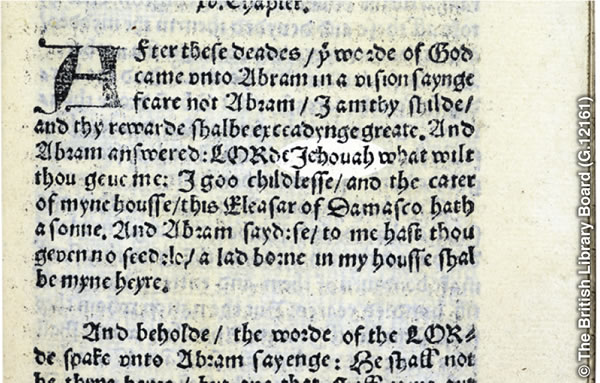 xv. Chapter.
After these deades / ẏ worde of God
came vnto Abram in a vision saynge
feare not Abram / I am thy shilde /
and thy rewarde shalbe exceadynge greate. And
Abram answered: LORde Jehouah what wilt
thou geue me: I goo childlesse / and the cater
of myne housse / this Eleasar of Damasco hath
a sonne. And Abram sayd: se / to me hast thou
geven no seed: lo / a lad borne in my housse shal
be myne heyre.
And beholde / the worde of the LOR⸗
de spake vnto Abram sayenge: He shall not
be thyne heyre / but one that
© The British Library Board (G.12161)